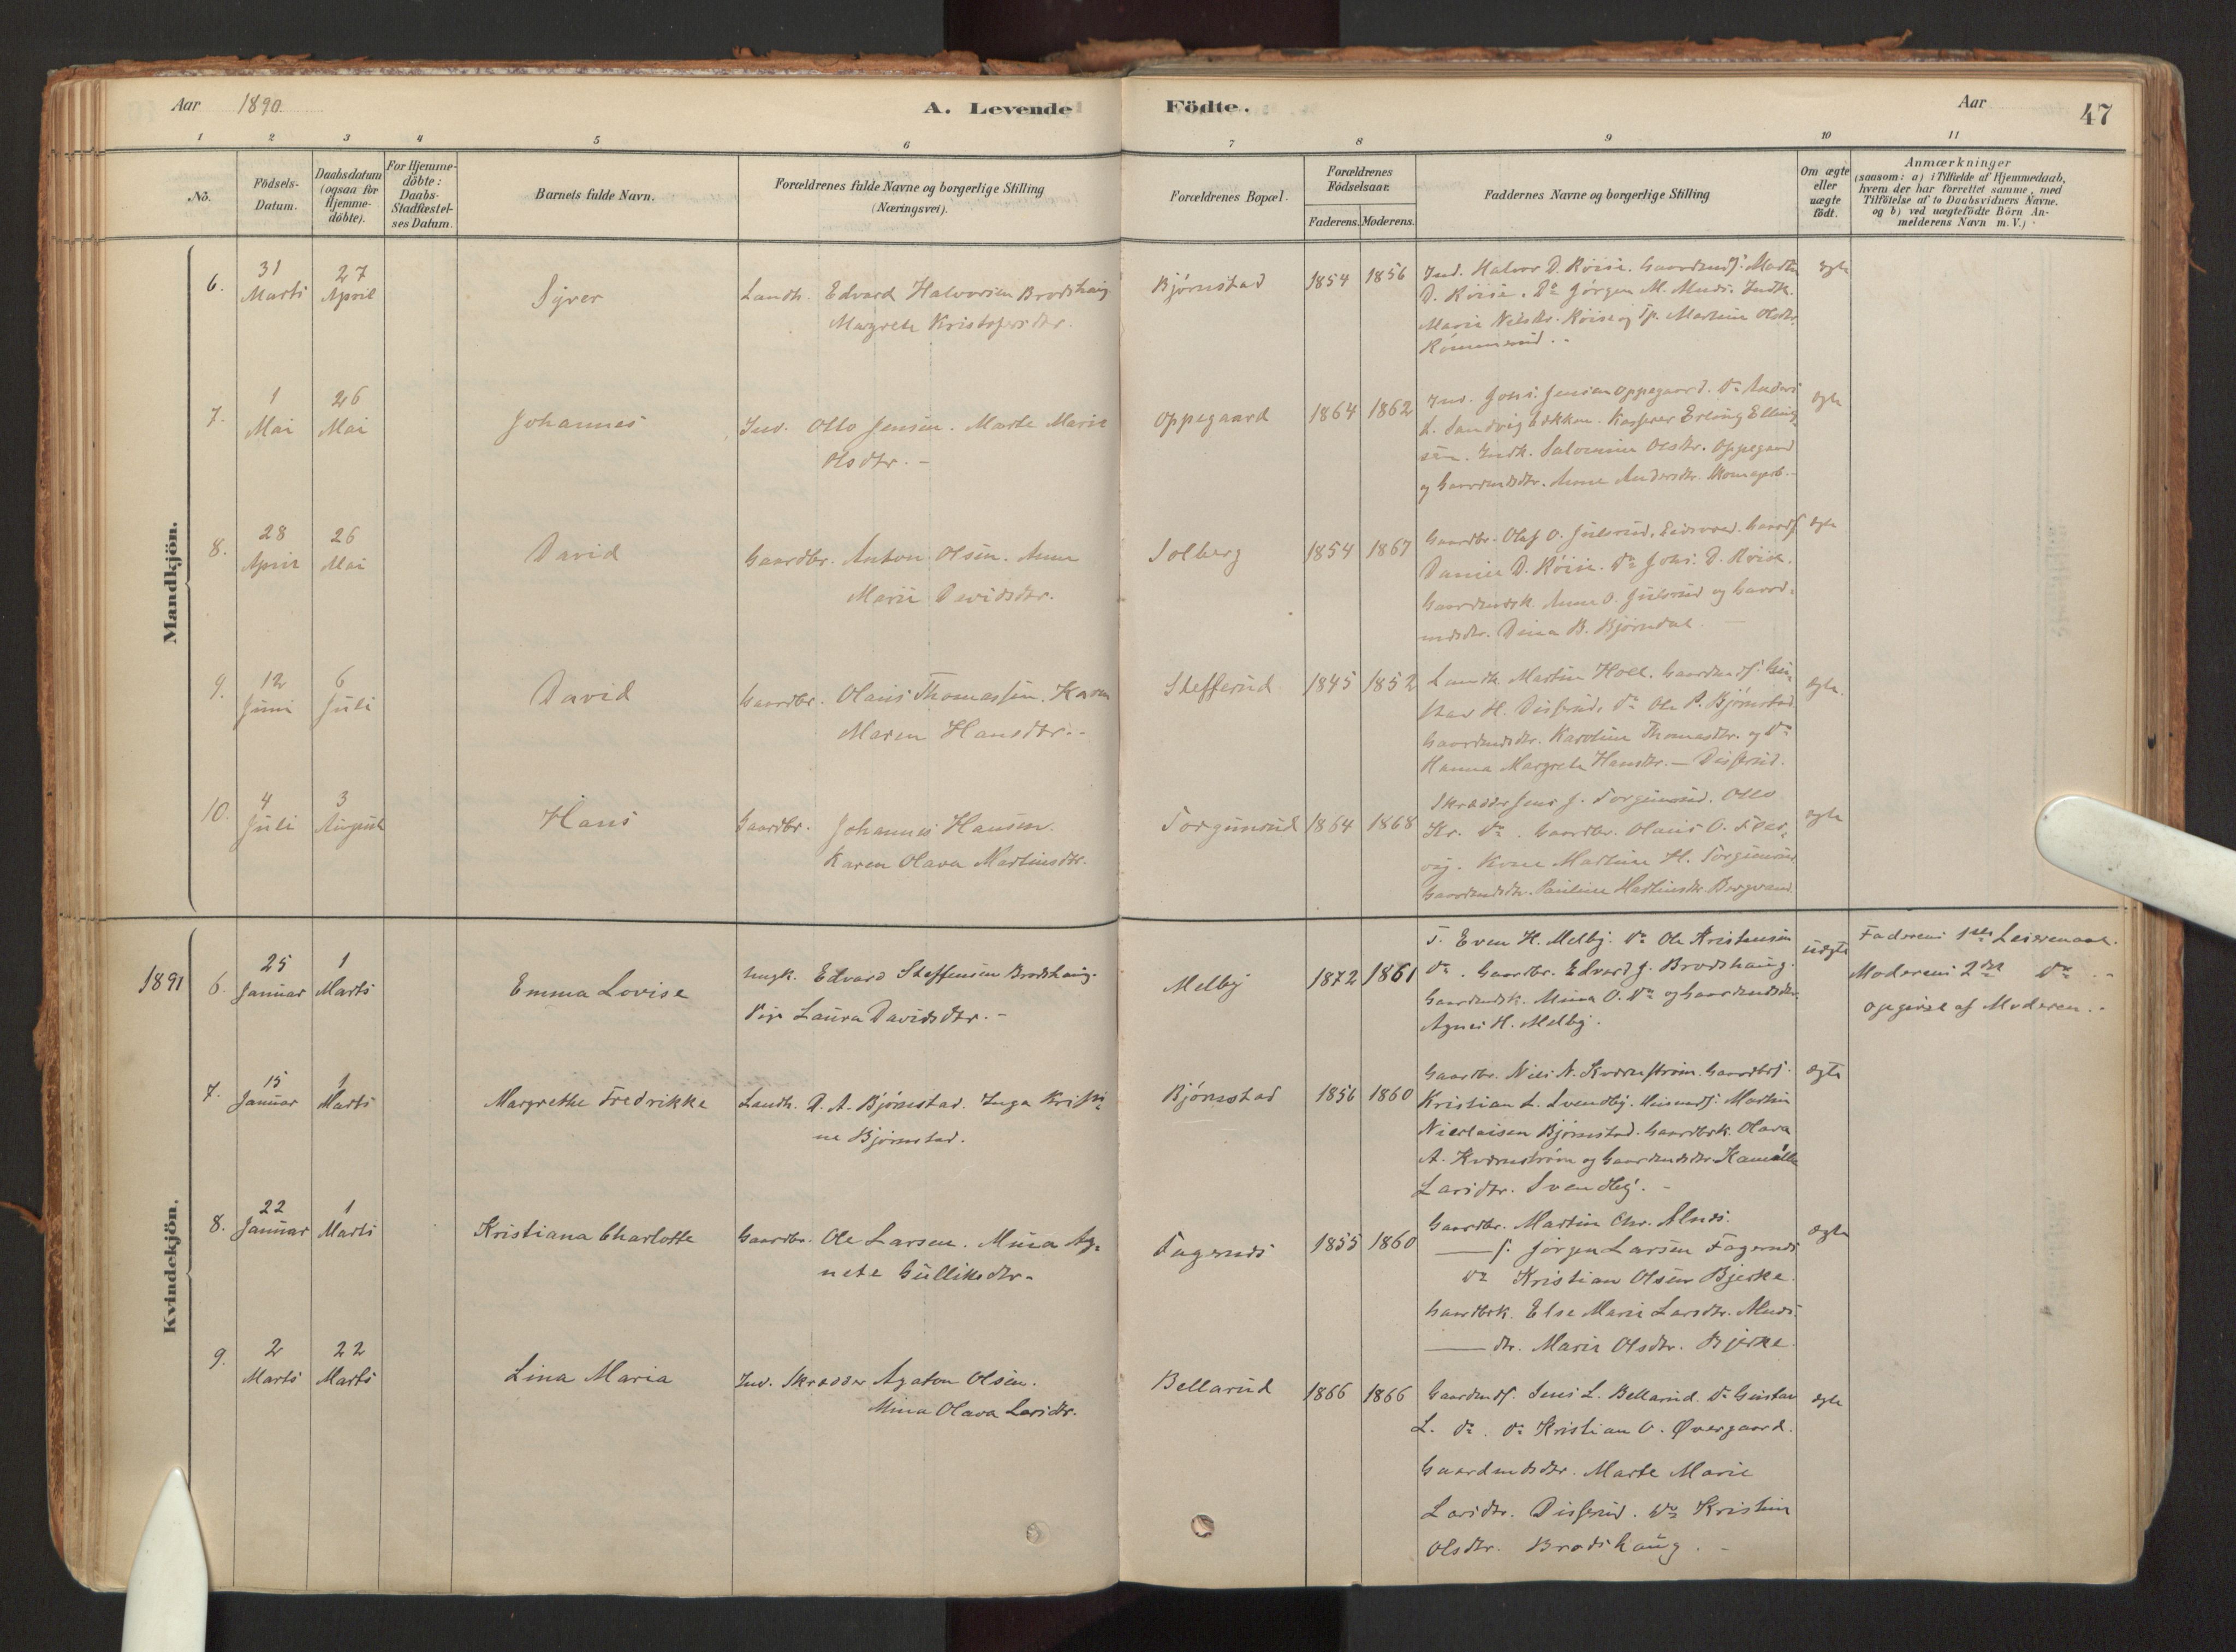 Aar 1890. A. Levende Födte. Aar 47
1 2 3 4 5 6 7 8 9 10 11
No. Födsels-Datum. Daabsdatum (ogsaa for Hjemme-döbte). For Hjemme-döbte: Daabs-Stadfæstel-ses Datum. Barnets fulde Navn. Forældrenes fulde Navne og borgerlige Stilling (Næringsvei). Forældrenes Bopæl. Forældrenes Födselsaar. Faderens. Moderens. Faddernes Navne og borgerlige Stilling Om ægte eller uægte födt. Anmærkninger (saasom: a) i Tilfælde af Hjemmedaab, hvem der har forrettet samme, med Tilföielse af to Daabsvidners Navne. og b) ved uægtefödte Börn An-melderens Navn m. V.)
Mandkjön.
6. 31 Marts 27 April Syver
Landh. Edvard Halvorsen Brodshaug
Margrete Kristofersdtr.
Bjørnstad 1854 1856
Ind. Halvor D. Röise. Gaardmds. Martin
D. Röise. Do Jörgen M. Mnds. Indk.
Marie Nilsdtr. Röise og Tp. Martine Olsdtr.
ægte
7. 1 Mai 26 Mai Johannes
Ind. Otto Jensen. Marte Marie
Olsdtr. -
Oppegaard 1864 1862
Ind. Johs. Jensen Oppegaard. Do Anders
Kasserer Erling Elling-
sen. Indk. Olsdtr. Oppegaard
og Gaardmdsdtr. Anne Andersdtr.
ægte
8. 28 April 26 Mai David
Gaardbr. Anton Olsen. Anne
Marie Davidsdtr.
Solberg 1854 1867
Gaardbr. Olaf O. Julsrud, Eidsvold. Gaards.
Daniel D. Röise. Do Johs. D. Röise.
Gaardmdsk. Anne O. Julsrud og Gaard-
mdsdtr. Dina B. Björndal.
ægte
9. 12 Juni 6 Juli David
Gaardbr. Olaus Thomassen. Karen
Maren Hansdtr.
Stefferud 1845 1852
Landh. Martin Holt. Gaardmds. Gu-
stav H. Disserud, Do Ole P. Bjørnstad
Gaardmdsdtr. Karoline Thomasdtr. og Do
Hanna Margrete Hansdtr. - Disserud.
ægte.
10. 4 Juli 3 August Hans
Gaardbr. Johannes Hansen.
Karen Olava Martinsdtr.
Torgunrud 1864 1868
Skrædder Jens J. Torgunrud. Otto
Kr. Do. Gaardbr. Olaus O.
Kone Martine H. Torgunrud
Gaardmdsdtr. Pauline Martinsdtr.
ægte
Kvindekjön.
1891 6. 25 Januar 1 Marts Emma Lovise
Ungk. Edvard Steffensen Brodshaug.
Pige Laura Davidsdtr. -
Melby 1872 1861
T. Even H. Melby. Do Ole Kristensen
Do. Gaardbr. Edvard J. Brodshaug.
Gaardmdsk. Mina O. Do og Gaardmdsdtr.
Agnes H. Melby.
uægte
Faderens 1ste Leiermaal.
Moderens 2det Do. -
opgivet af Moderen. -
7. 15 Januar 1 Marts Margrethe Fredrikke
Landh. A. A. Bjørnstad. Inga Kristi-
ne Bjørnstad.
Bjørnstad 1856 1860
Gaardbr. Nils N. Kværnstrøm. Gaardbrs.
Kristian L. Svendby. Martin
Nicolaisen Bjørnstad. Gaardbrk. Olava
A. Kværnstrøm og Gaardmdsdtr. Kamilla
Larsdtr. Svendby. -
ægte
8. 22 Januar 1 Marts Kristiana Charlotte
Gaardbr. Ole Larsen. Mina Ag-
nete Gulliksdtr.
Fagernæs 1855 1860
Gaardbr. Martin Chr.
— s. Jørgen Larsen Fagernæs
Do Kristian Olsen Bjerke.
Gaardbrk. Else Marie Larsdtr.
— dtr. Marie Olsdtr. Bjerke.
ægte
9. 2 Marts 22 Marts Lina Maria
Ind. Skrædder Agaton Olsen.
Mina Olava Larsdtr.
Bellarud 1866 1866
Gaardmds. Jens L. Bellarud. Do Gustav
L. Do. Do Kristian O. Øvergaard.
Gaardmdsdtr. Marte Marie
Larsdtr. Disserud. Do Kristine
Olsdtr. Brodshaug. -
ægte